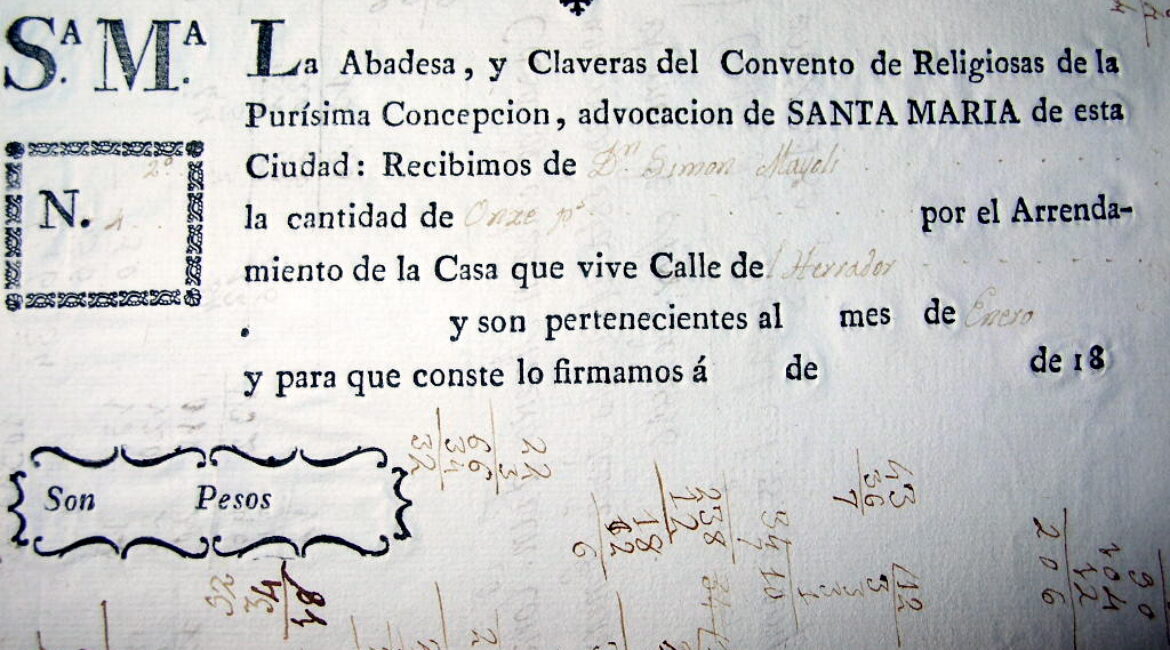 Sᴬ. Mᴬ.
La Abadesa, y Claveras del Convento de Religiosas de la
Purísima Concepcion, advocacion de SANTA MARIA de esta
Ciudad: Recibimos de Dn. Simon
N.
2º
la cantidad de Onze ps. por el Arrenda-
miento de la Casa que vive Calle del Herrador
. y son pertenecientes al mes de Enero
y para que conste lo firmamos á de de 18
Son Pesos
22
3
66
34
32
43
36
7
238
12
18
62
6
34
7
10
42
3
104
12
206
84
34
32